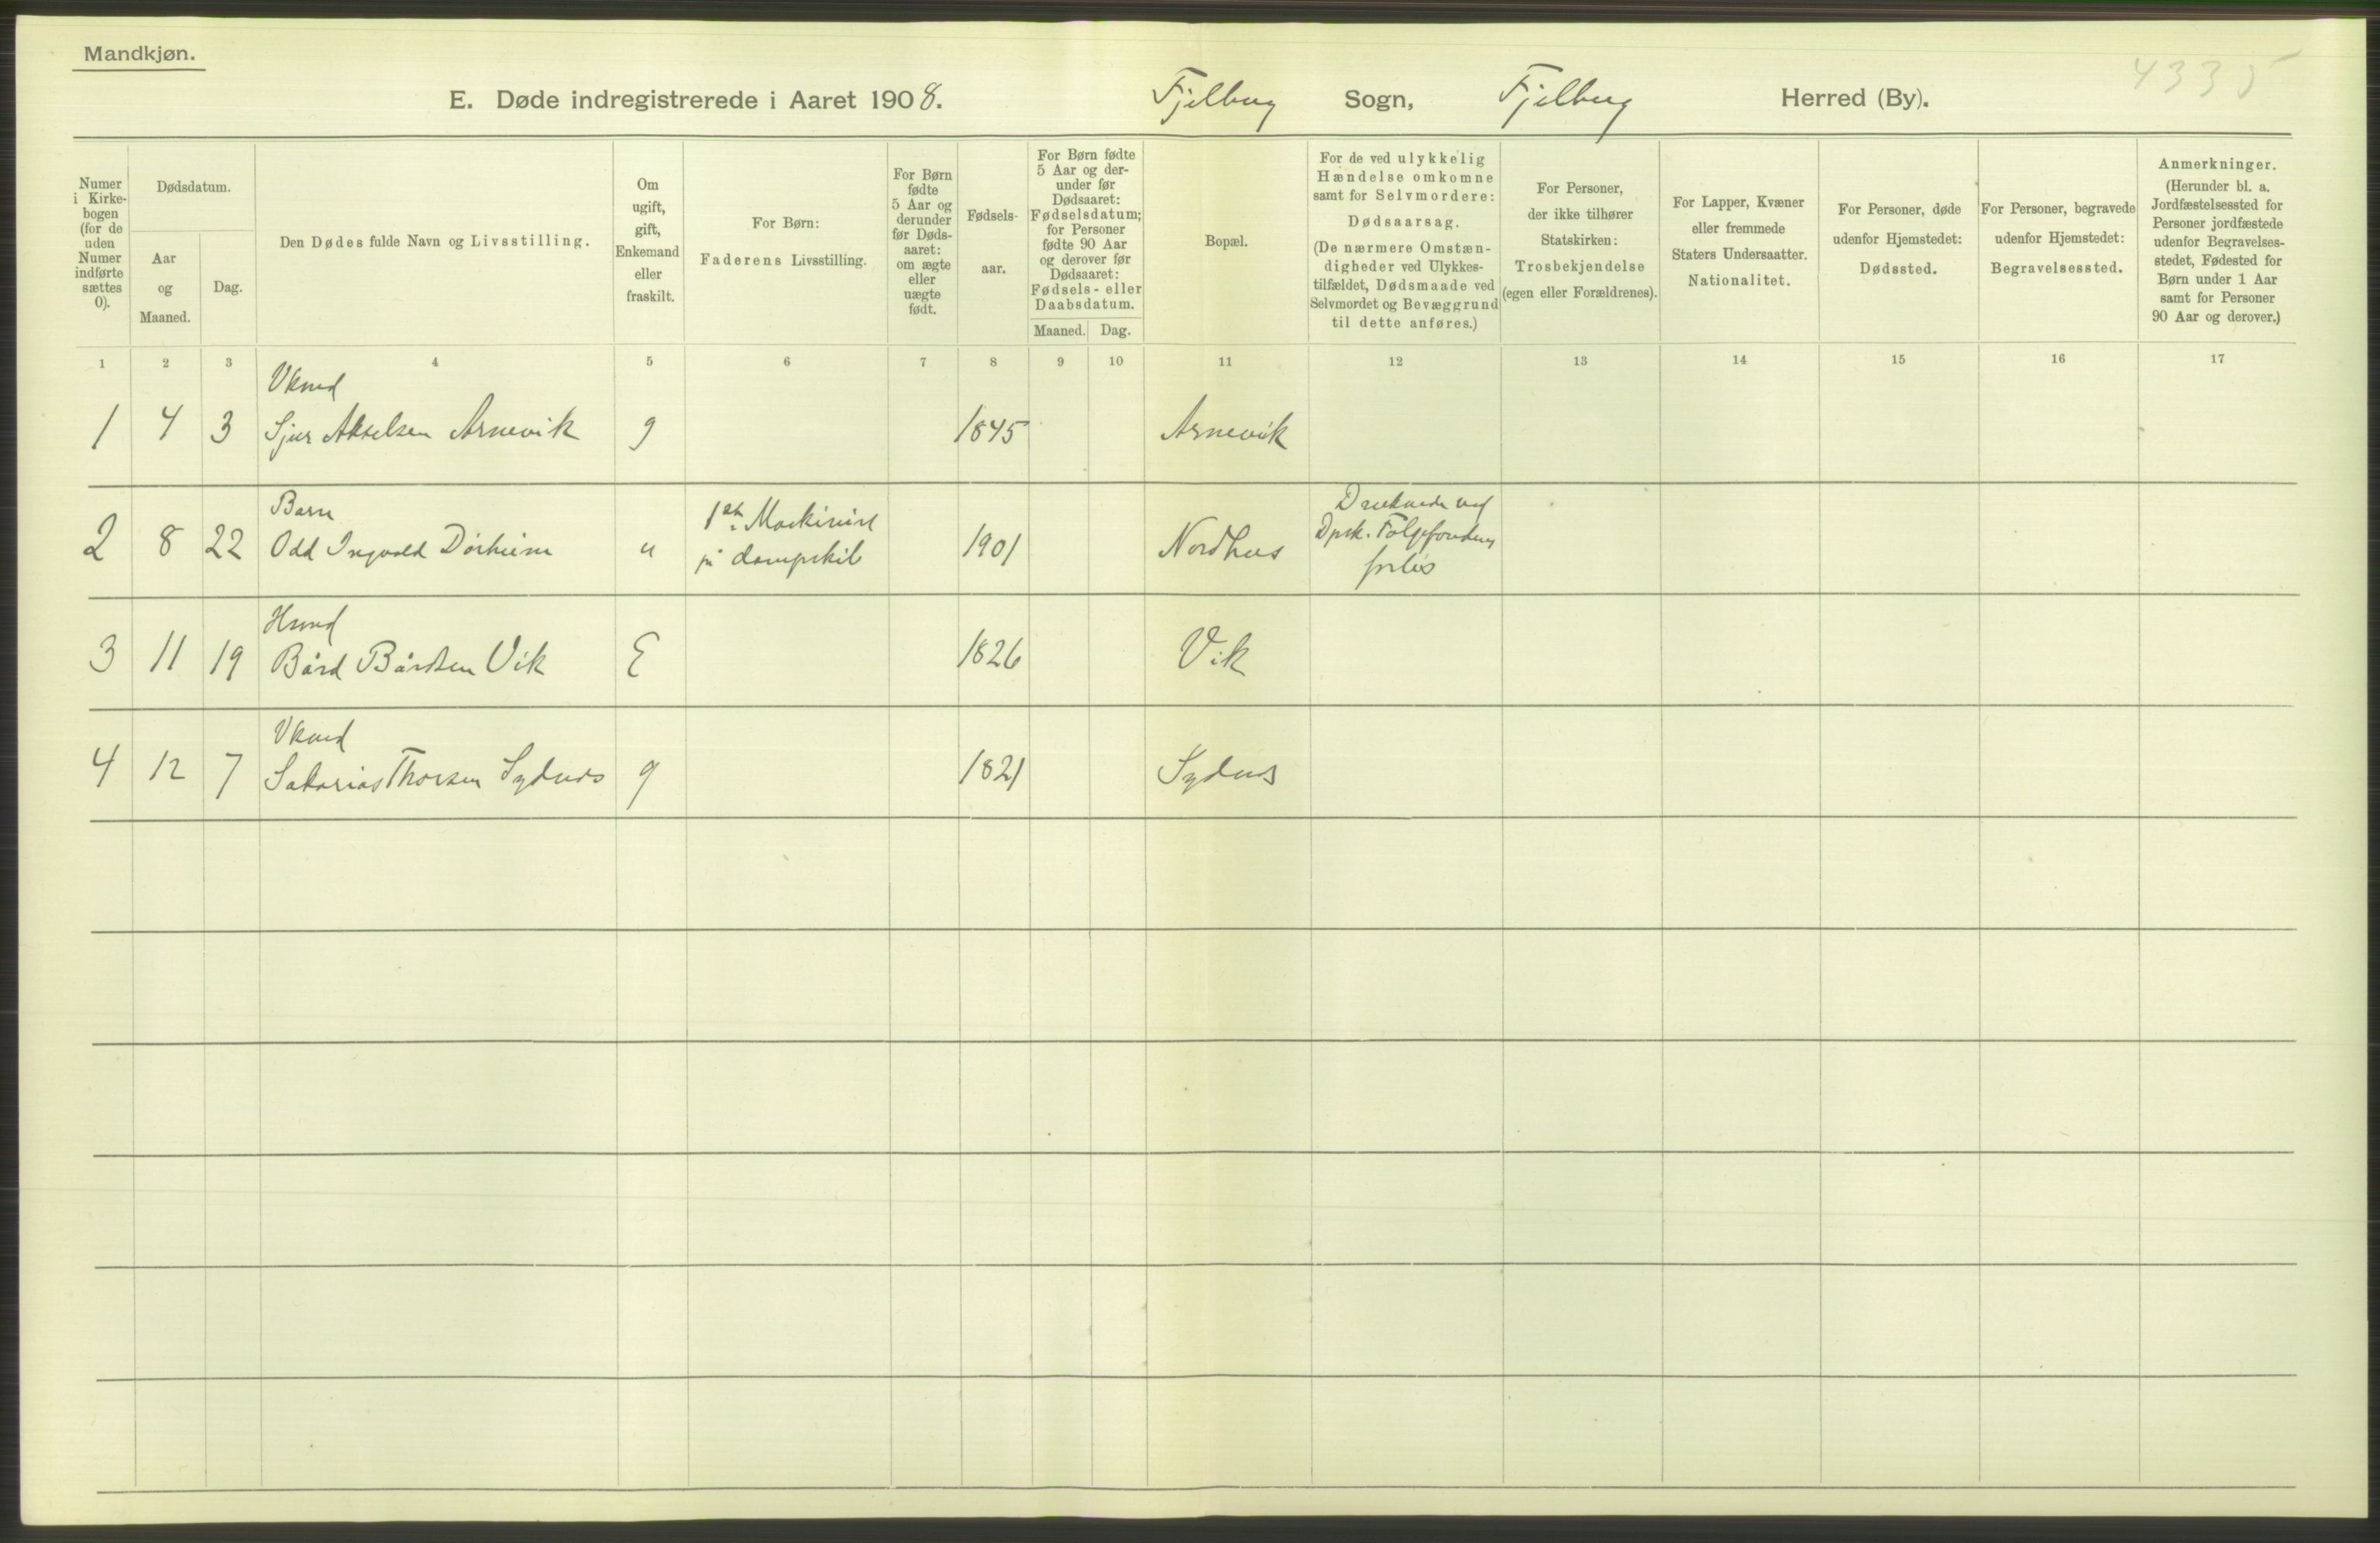 Mandkjøn.
4335
E. Døde indregistrerede i Aaret 1908. Fjelberg Sogn, Fjelberg Herred (By).
Numer
i Kirke-
bogen
(for de
uden
Numer
indførte
sættes
0).
Dødsdatum.
Aar
og
Maaned.
Dag.
Den Dødes fulde Navn og Livsstilling.
Om
ugift,
gift,
Enkemand
eller
fraskilt.
For Børn:
Faderens Livsstilling.
For Børn
fødte
5 Aar og
derunder
før Døds-
aaret:
om ægte
eller
uægte
født.
Fødsels-
aar.
For Børn fødte
5 Aar og der-
under før
Dødsaaret:
Fødselsdatum;
for Personer
fødte 90 Aar
og derover før
Dødsaaret:
Fødsels- eller
Daabsdatum.
Maaned. Dag.
Bopæl.
For de ved ulykkelig
Hændelse omkomne
samt for Selvmordere:
Dødsaarsag.
(De nærmere Omstæn-
digheder ved Ulykkes-
tilfældet, Dødsmaade ved
Selvmordet og Bevæggrund
til dette anføres.)
For Personer,
der ikke tilhører
Statskirken:
Trosbekjendelse
(egen eller Forældrenes).
For Lapper, Kvæner
eller fremmede
Staters Undersaatter.
Nationalitet.
For Personer, døde
udenfor Hjemstedet:
Dødssted.
For Personer, begravede
udenfor Hjemstedet:
Begravelsessted.
Anmerkninger.
(Herunder bl. a.
Jordfæstelsessted for
Personer jordfæstede
udenfor Begravelses-
stedet, Fødested for
Børn under 1 Aar
samt for Personer
90 Aar og derover.)
1 2 3 4 5 6 7 8 9 10 11 12 13 14 15 16 17
Vkmd
1 4 3 Sjur Akselsen Arnevik g 1845 Arnevik
Barn
2 8 22 Odd Ingvald Dörheim u 1ste Maskinist
på dampskib 1901 Nordhus
Druknede ved
Dpsk. Folgefondens
forlis
Hmd
3 11 19 Bård Bårdsen Vik E 1826 Vik
Vkmd
4 12 7 Sakarias Thorsen Sydnes g 1821 Sydnes